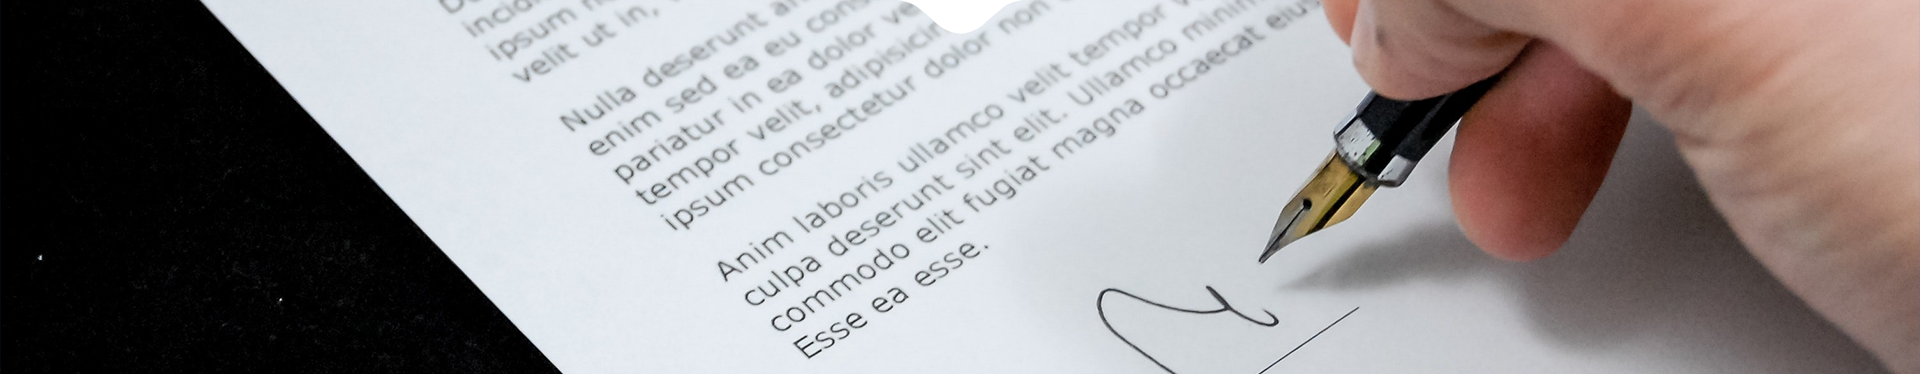 incidi
ipsum n
velit ut in,
Nulla deserunt an
enim sed ea eu cons
pariatur in ea dolor ve
tempor velit, adipisicin
ipsum consectetur dolor non
Anim laboris ullamco velit tempor
culpa deserunt sint elit. Ullamco minim
commodo elit fugiat magna occaecat eius
Esse ea esse.